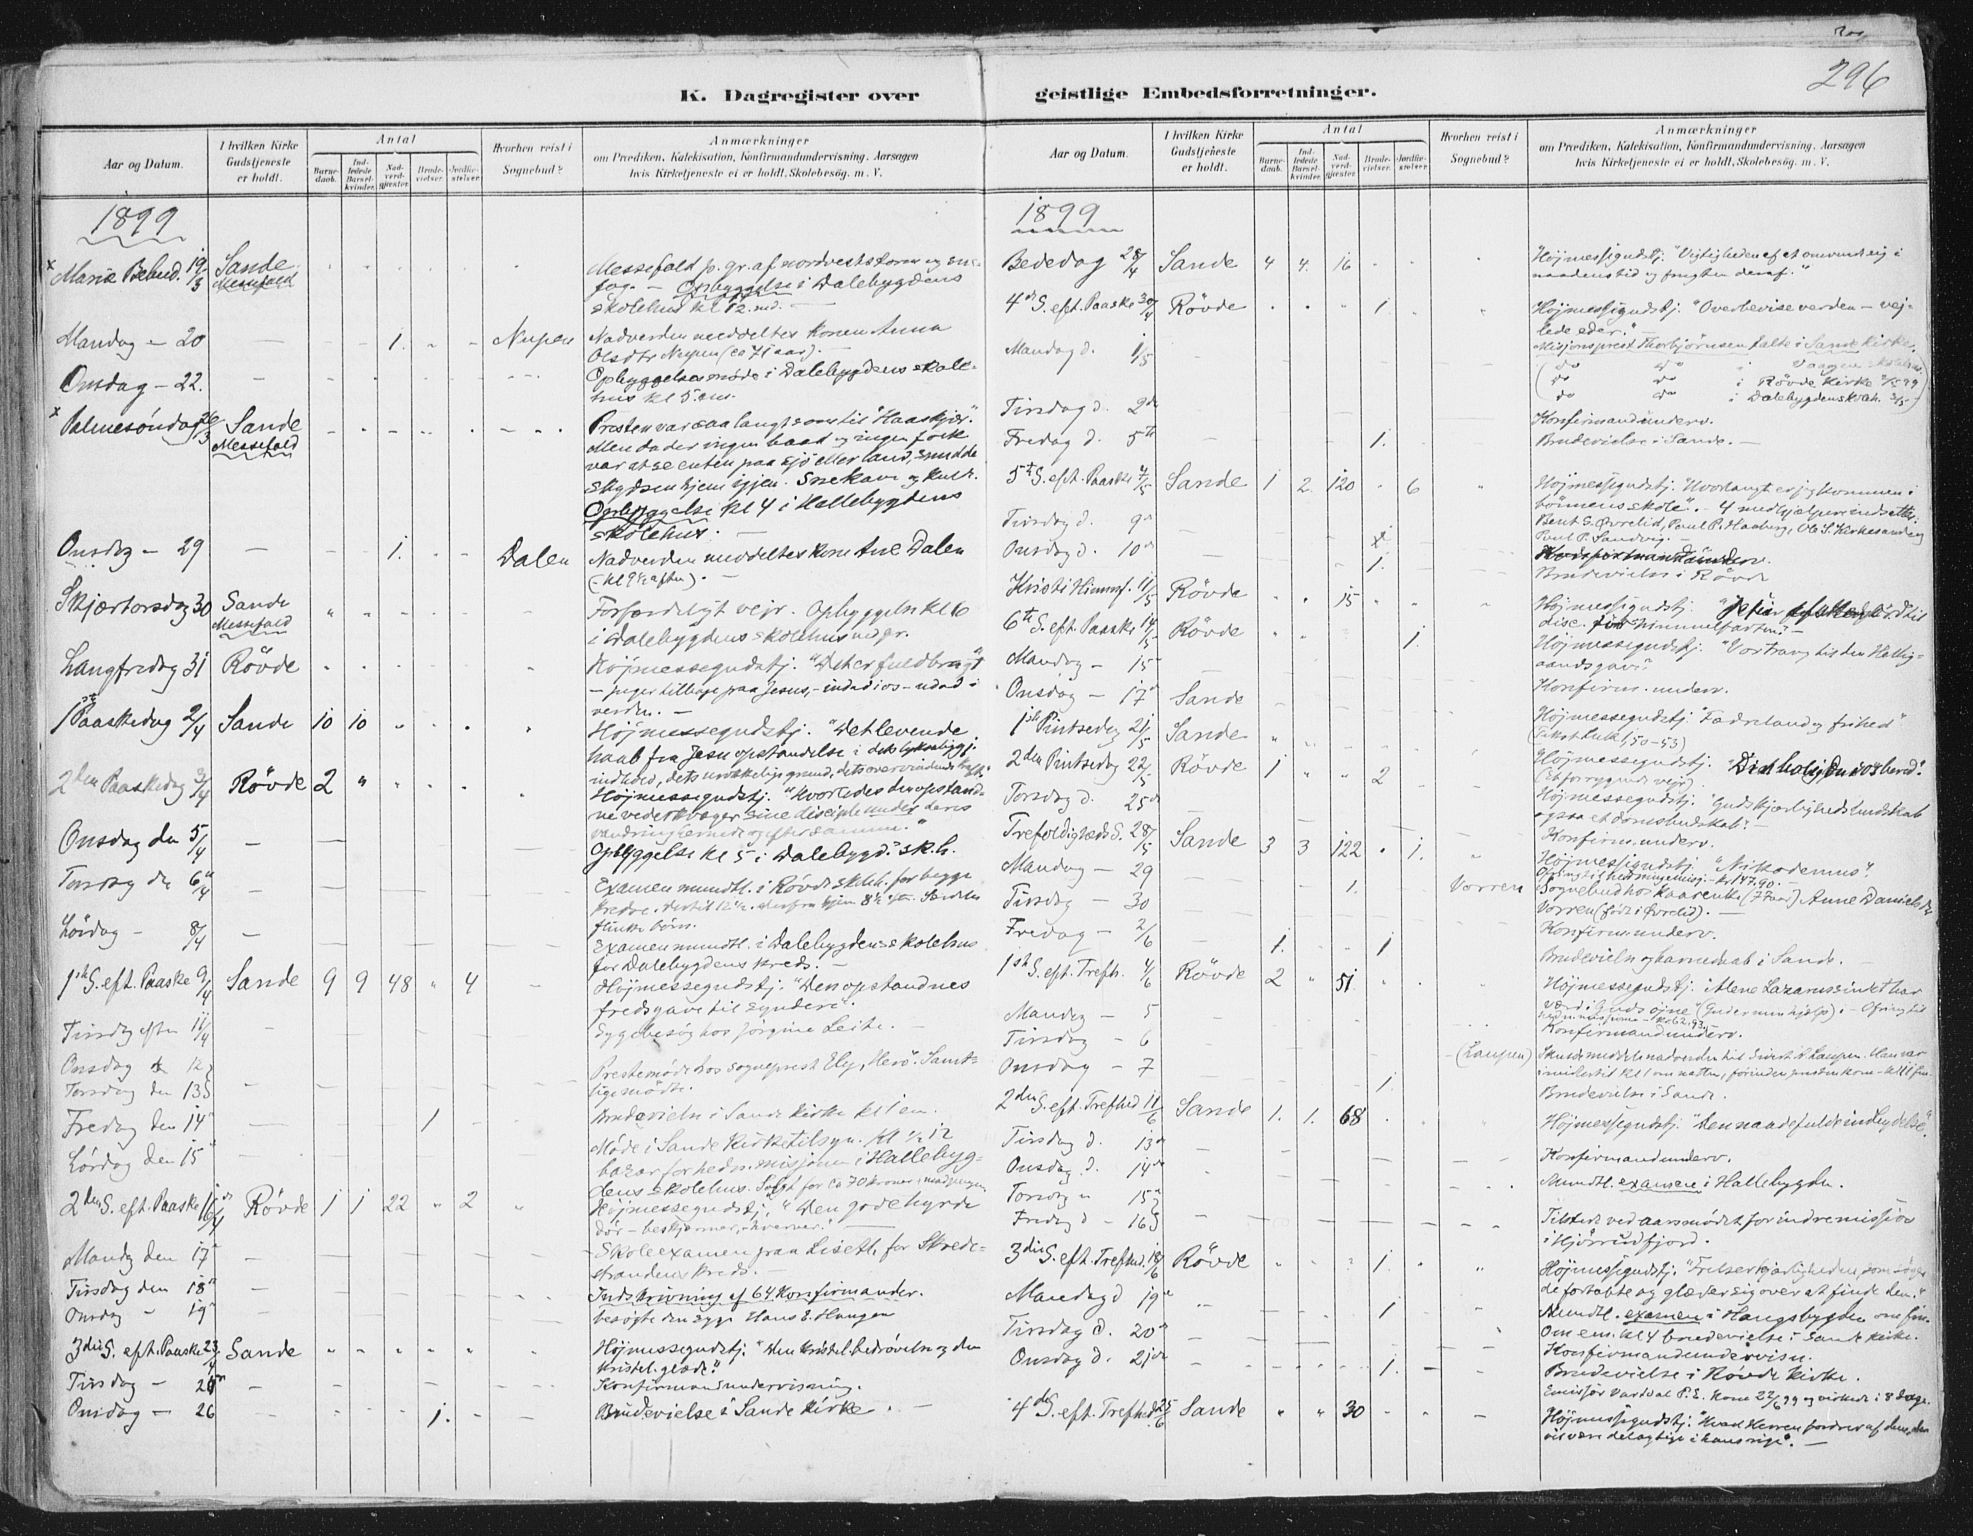 296
K. Dagregister over geistlige Embedsforretninger.
Aar og Datum.
I hvilken Kirke Gudstjeneste er holdt.
Antal
Barnedaab.
Indledede Barselkvinder.
Nadverdgjester.
Brudevielser.
Jordfæstelser.
Hvorhen reist i Sognebud?
Anmærkninger
om Prædiken, Katekisation, Konfirmandundervisning, Aarsagen
hvis Kirketjeneste ei er holdt, Skolebesøg. m. V.
1899
x Mariæ Bebud. 19/3 Sande Messefald Messefald p. gr. af nordveststorm og sne-
fog. — Opbyggelse i Dalebygdens
skolehus kl 12 md. —
Mandag — 20 — 1. Nupen Nadverden meddeltes konen Anna
Olsdtr Nupen (ca 71 aar). —
Onsdag — 22. Opbyggelsesmøde i Dalebygdens skole-
hus kl 5 em.
x Palmesöndag 26/3 Sande Messefald Presten var saa langt som til "Haaskjær."
Men da der ingen baad og ingen folk
var at se enten paa sjö eller land,
skydsen hjem igjen. Snekave og
Opbyggelse kl 4 i Hallebygdens
skolehus. —
Onsdag — 29 — 1. Dalen Nadverden meddeltes kone Ane Dalen
(kl 9½ aften). —
Skjærtorsdag 30 Sande Messefald Forfærdeligt vejr. Opbyggelse kl 6
i Dalebygdens skolehus
Langfredag 31 Røvde Højmessegudstj. "Det er fuldbragt"
— peger tilbage paa Jesus, — ind ad i os — ud ad i
verden. —
1ste Paaskedag 2/4 Sande 10 10 Højmessegudstj. "Det levende
haab fra Jesu opstandelse i
indhold, dets grund, dets overvindende
2den Paaskedag 3/4 Røvde 2 " Højmessegudstj. "Hvorledes den opstand-
ne vederkvæger sine disciple under deres
vandring hernede og efter
Onsdag den 5/4 — Opbyggelse kl 5 i Dalebygd. sk.h.
Torsdag den 6/4 — Examen mundtl. i Røvde sk.h. for begge
kredse.
flinke börn.
Lördag — 8/4 — Examen mundtl. i Dalebygdens skolehus
for Dalebygdens kreds. —
1ste S. eft. Paaske 9/4 Sande 9 9 48 " 4 Højmessegudstj. "Den opstandnes
fredsgave til syndere".
Tirsdag efter 11/4 Sygebesøg hos Jörgine Leite.
Onsdag 12 Prestemöde hos sogneprest Ely, Herö. Samt-
Torsdag den 13 lige mödte.
Fredag den 14 1 Brudevielse i Sande kirke kl 1 em.
Lördag den 15 Möde i Sande kirketilsyn. kl ½12
bazar for hedn. misjonen i Hallebyg-
dens skolehus. Solgt for ca 70 kroner
2den S. eft. Paaske 16/4 Røvde 1 1 22 " 2 Højmessegudstj. "Den gode hyrde
dör — beskjermer, — kverner." —
Mandag den 17 Skoleexamen paa Liseth, for Skrede-
strandens kreds. —
Tirsdag den 18 Indskrivning af 64 konfirmander.
Onsdag — 19 besøgte den syge Hans E. Haugen
3die S. eft. Paaske 23/4 Sande Højmessegudstj. "Den kristel. bedrøvelse og den
kristel. glæde."
Tirsdag — Konfirmandundervisning.
Onsdag — 26 1. Brudevielse i Sande kirke. —
Aar og Datum.
I hvilken Kirke Gudstjeneste er holdt.
Antal
Barnedaab.
Indledede Barselkvinder.
Nadverdgjester.
Brudevielser.
Jordfæstelser.
Hvorhen reist i Sognebud?
Anmærkninger
om Prædiken, Katekisation, Konfirmandundervisning, Aarsagen
hvis Kirketjeneste ei er holdt, Skolebesög. m. V.
1899
Bededag 28/4 Sande 4 4. 16 Højmessegudstj. "Vigtigheden af at omvende sig i
naadens tid og frugten deraf."
4de S. eft. Paaske 30/4 Røvde 1. Højmessegudstj. "Overbevise verden — vej-
lede eder." —
Mandag d. 1/5 Misjonsprest Thorbjörnsen talte i Sande kirke.
(do do i Vaagens skolehus.
do do i Røvde kirke 2/5 99
do do i Dalebygdens sk.h. 3/5)
Tirsdag d. 2den Konfirmandunderv.
Fredag d. 5te 1. Brudevielse i Sande. —
5te S. eft. Paaske 7/5 Sande 1 2. 120 6 Højmessegudstj. "Hvor langt er jeg kommen i
bönnens skole". — 4 medhjælpere indsattes.
Tirsdag d. 9de Bent S. Øvrelid, Paul P. Haaberg, Ole S. Kirkesanden og
Paul P. Sandvig. —
Onsdag d. 10de 1. Brudevielse i Røvde
Kristi Himmf. 11/5 Røvde 15 Højmessegudstj. "Jesu til
disc. før himmelfarten". —
6te S. eft. Paaske 14/5 Røvde 1. Højmessegudstj. "Vor trang til den Hellig-
aands gave".
Mandag — 15 Konfirm. underv.
Onsdag — 17 Sande Højmessegudstj. "Fædreland og frihed"
1ste Pintsedag 21/5 Sande Højmessegudstj.
2den Pintsedag 22/5 Røvde 1 " " 2 Højmessegudstj. "Guds kjærligheds budskab
ogsaa et domsbudskab". —
Torsdag d. 25de Konfirm. underv.
Trefoldigheds S. 28/5 Sande 3 3 122 1. Højmessegudstj. "Nikodemus".
Ofring til hedningemisj. — kr 147,90. —
Mandag — 29 1. Vorren Sognebud hos kaarenke (77 aar) Anne Danielsdtr
Vorren (födt i Øvrelid). —
Tirsdag — 30 Konfirm. underv.
Fredag — 2/6 1. 1 Brudevielse og barnedaab i Sande. —
1ste S. eft. Trefh. 4/6 Røvde 2 " 51 Højmessegudstj. "Alene Lazarussindet har
værd i Guds øjne (Gud er min hjælp). — Ofring til
hedningemisjonen — kr 62,93.
Mandag — 5 Konfirmandunderv.
Tirsdag — 6 (Laupen)
Onsdag — 7 1. Brudevielse i Sande.
2den S. eft. Trefhed 11/6 Sande 1. 1. 68 Højmessegudstj. "Den naadefulde indbydelse".
Tirsdag d. 13de Konfirmandunderv.
Onsdag d. 14de Mundtl. examen i Hallebygden.
Torsdag " 15
Fredag d — 16 Tilstede ved aarsmødet for indremissjon
i Hjörundfjord. —
3die S. eft. Trefhed. 18/6 Røvde 1. Højmessegudstj. "Frelserkjærligheden, som søger
de fortabte og glæder sig over at finde dem."
Mandag d 19de 1 Mundtl. examen i Haugsbygden om fm.
Om em. kl 4 brudevielse i Sande kirke.
Tirsdag d. 20de Konfirmandundervisn.
Onsdag d. 21de 1. Brudevielse i Røvde kirke.
Emissjær Vardal P. E. kom 22/6 99 og virkede i 8 dage.
4de S. eft. Trefhed. 25/6 Sande " " 30 Højmessegudstj. "Hvad Herren fordrer af dem, der
vil være delagtige i hans rige". —